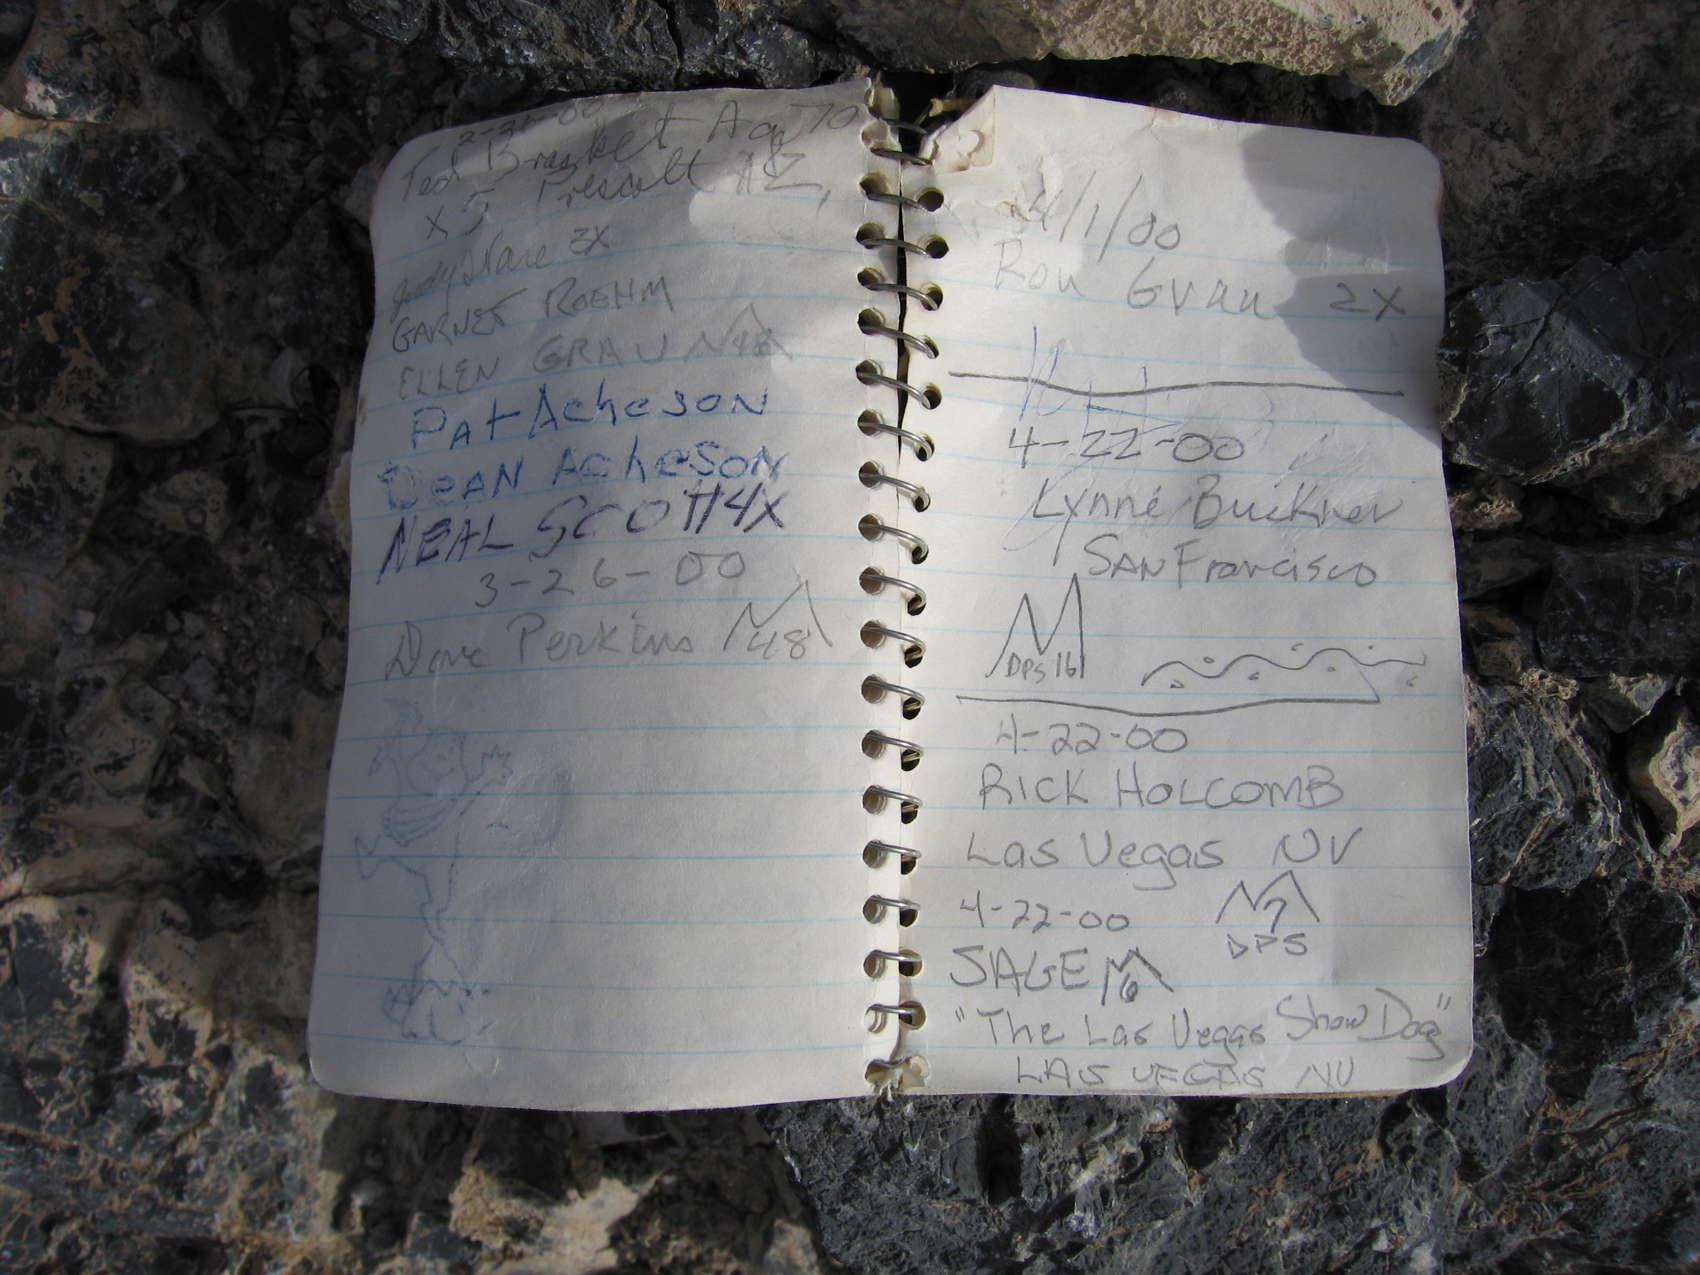 Ted Brasket Age 70
x 5 Prescott AZ,
Judy Ware 3X
GARNET ROEHM
ELLEN GRAU
Pat Acheson
Dean Acheson
NEAL SCOTT 4X
3-26-00
Dave Perkins 48
4/1/00
Ron Grau 2X
4-22-00
Lynne Buckner
San Francisco
DPS 161
4-22-00
RICK HOLCOMB
Las Vegas NV
4-22-00 7
DPS
SAGE 6
"The Las Vegas Show Dog"
LAS VEGAS NV